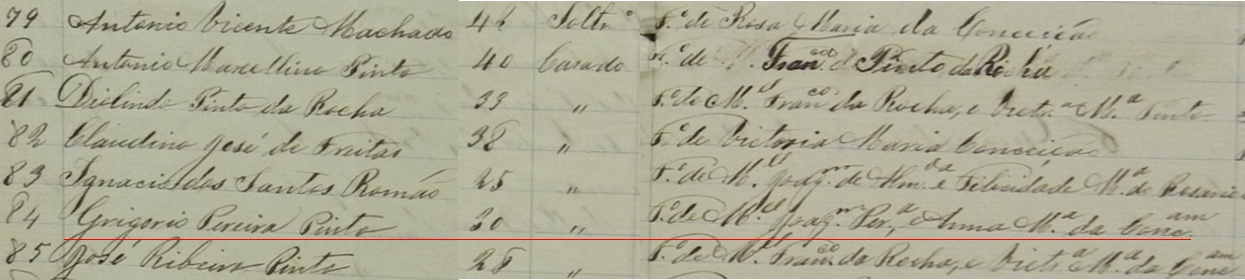 79 Antonio Vicente Machado 42 Soltrº Fº de Rosa Maria da Conceição
80 Antonio Marcellino Pinto 40 Casado Fº de M. Francº Pinto da Rocha
81 Diolindo Pinto da Rocha 33 " Fº de M.el Francº da Rocha, e Victª Mª Pinto
82 Claudino José de Freitas 38 " Fº de Victoria Maria Conceição
83 Ignacio dos Santos Romão 25 " Fº de M.el de e Filicidade Mª do Rosario
84 Grigorio Pereira Pinto 30 " Fº de M.el Joaqm Perª, e Anna Mª da Concam
85 José Ribeiro Pinto 28 " Fº de M.el Francº da Rocha, e Victª Mª da Concam